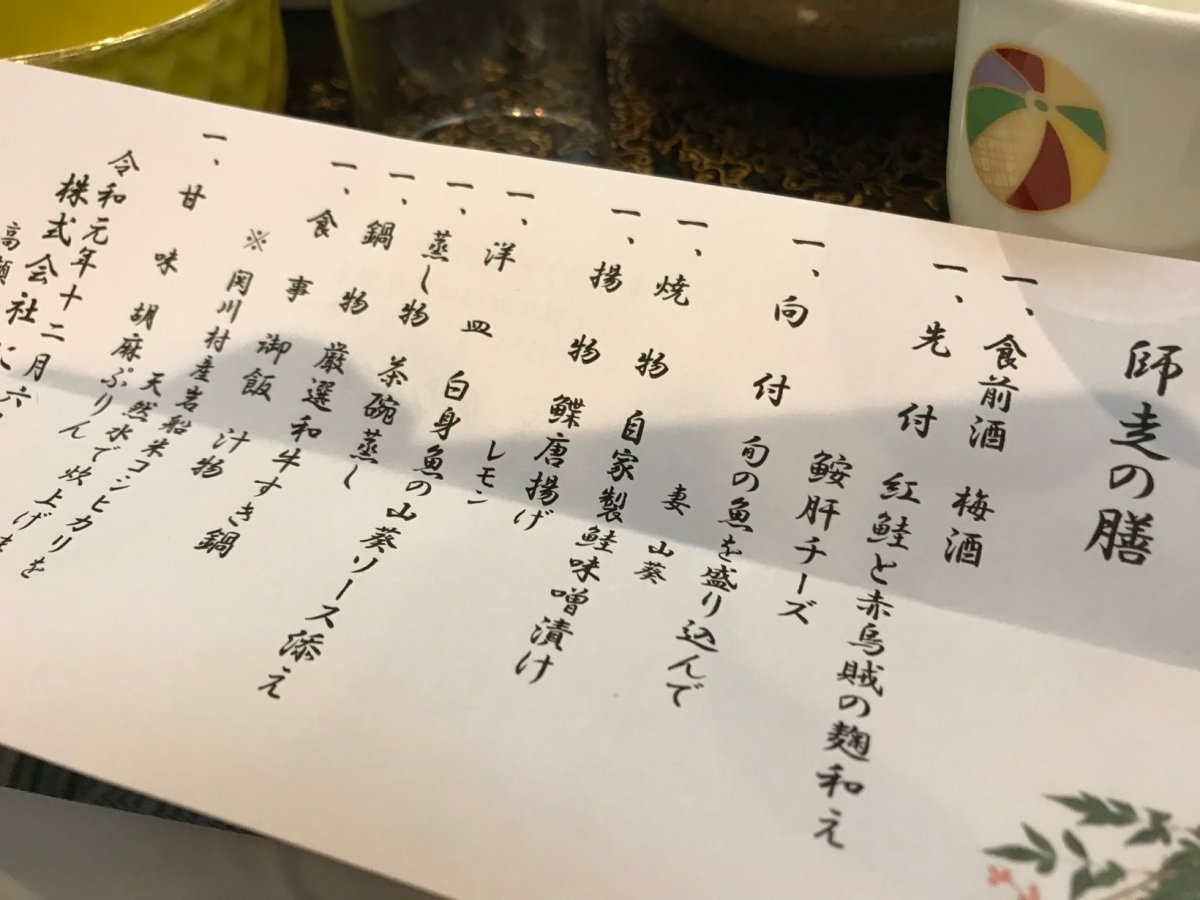 師走の膳
一、食前酒 梅酒
一、先付 紅鮭と赤烏賊の麹和え
鮟肝チーズ
一、向付 旬の魚を盛り込んで
妻 山葵
一、焼物 自家製鮭味噌漬け
一、揚物 鰈唐揚げ
レモン
一、洋皿 白身魚の山葵ソース添え
一、蒸し物 茶碗蒸し
一、鍋物 厳選和牛すき鍋
一、食事 御飯 汁物
※関川村産岩船米コシヒカリを
天然水で炊上げを
一、甘味 胡麻ぷりん
令和元年十二月
株式会社
高